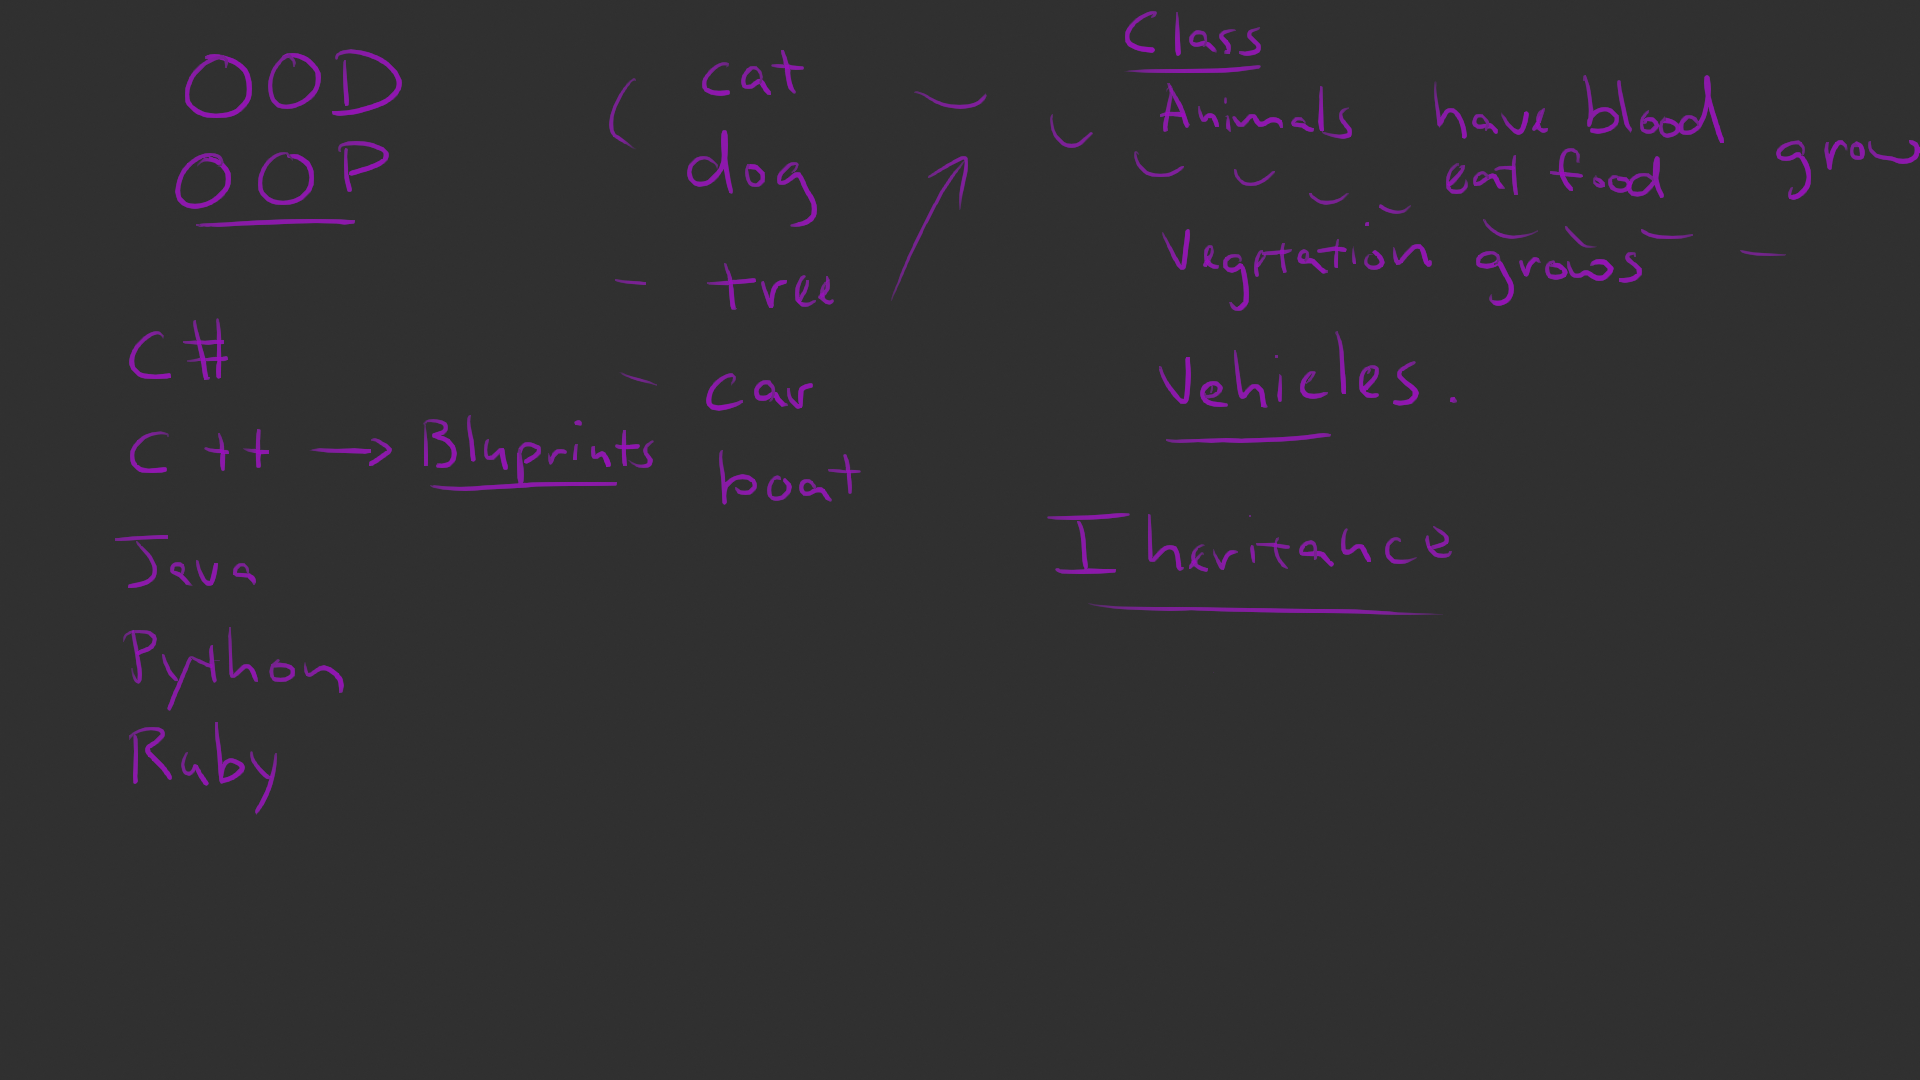 OOD
OOP
C#
C++ → Bluprints
Java
Python
Ruby
cat
dog
tree
car
boat
Class
Animals have blood
eat food grow
Vegtation grows
Vehicles.
Inheritance